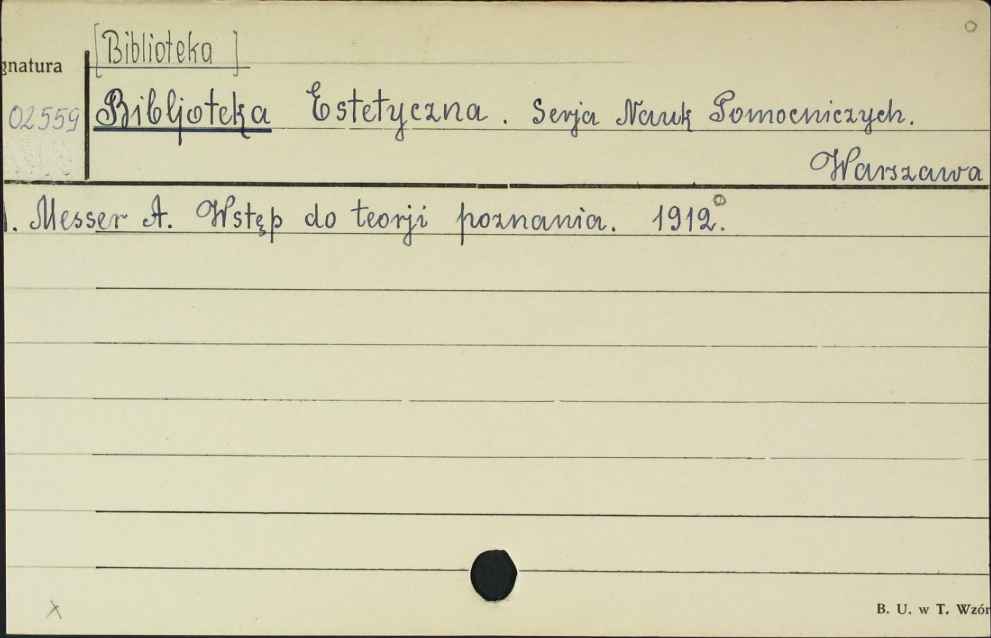 [Biblioteka]
gnatura
02559 Bibljoteka Estetyczna. Serja Nauk Pomocniczych.
Warszawa
1. Messer A. Wstęp do teorji poznania. 1912.°
B. U. w T. Wzór